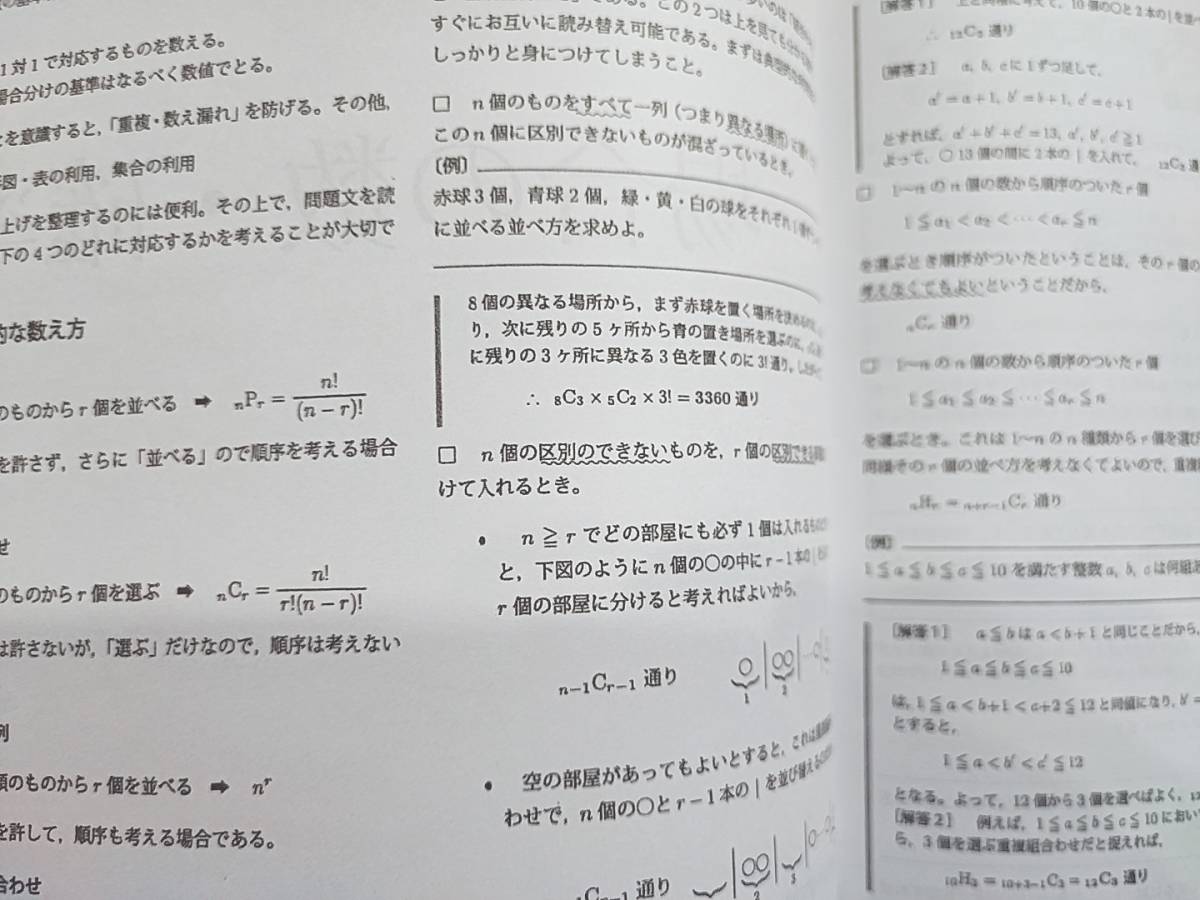 1対1で対応するものを数える。
場合分けの基準はなるべく数値でとる。
とを意識すると,「重複・数え漏れ」を防げる。その他,
図・表の利用，集合の利用
上げを整理するのには便利。その上で，問題文を読
下の4つのどれに対応するかを考えることが大切で
的な数え方
のものから r 個を並べる ➡ nPr = n!/(n − r)!
を許さず，さらに「並べる」ので順序を考える場合
せ
のものから r 個を選ぶ ➡ nCr = n!/r!(n − r)!
は許さないが,「選ぶ」だけなので，順序は考えない
列
類のものから r 個を並べる ➡ n^r
を許して，順序も考える場合である。
合わせ
である。この2つは上を見ても
すぐにお互いに読み替え可能である。まずは典型
しっかりと身につけてしまうこと。
□ n 個のものをすべて一列（つまり異なる場所）に
この n 個に区別できないものが混ざっているとき。
〔例〕
赤球3個，青球2個，緑・黄・白の球をそれぞれ1
に並べる並べ方を求めよ。
8個の異なる場所から，まず赤球を置く場所を決める
り，次に残りの5ヶ所から青の置き場所を選ぶのに,
に残りの3ヶ所に異なる3色を置くのに3!通り。
∴ 8C3 × 5C2 × 3! = 3360 通り
□ n 個の区別のできないものを，r 個の区別できる
けて入れるとき。
• n ≧ r でどの部屋にも必ず1個は入れる
と，下図のように n 個の○の中に r − 1 本の |
r 個の部屋に分けると考えればよいから,
n−1Cr−1 通り
○|○○|
1 2
• 空の部屋があってもよいとすると，これは
わせで，n 個の○と r − 1 本の | を並び替える
Cr−1 通り
|○○| |○
2 3
〔解答1〕 10個の○と2本の | を
∴ 12C2 通り
〔解答2〕 a, b, c に1ずつ足して,
a′ = a+1, b′ = b+1, c′ = c+1
とすれば，a′ + b′ + c′ = 13, a′, b′, c′ ≧ 1
よって，○13個の間に2本の | を入れて， 12C2 通
□ 1〜n の n 個の数から順序のついた r 個
1 ≦ a1 < a2 < ⋯ < ar ≦ n
を選ぶとき順序がついたということは，その r 個の
考えなくてもよいということだから,
nCr 通り
□ 1〜n の n 個の数から順序のついた r 個
1 ≦ a1 ≦ a2 ≦ ⋯ ≦ ar ≦ n
を選ぶとき。これは 1〜n の n 種類から r 個を選び
同様その r 個の並べ方を考えなくてよいので，重複
nHr = n+r−1Cr 通り
〔例〕
1 ≦ a ≦ b ≦ c ≦ 10 を満たす整数 a, b, c は何組
〔解答1〕 a ≦ b は a < b + 1 と同じことだから,
1 ≦ a ≦ b ≦ c ≦ 10
は，1 ≦ a < b+1 < c+2 ≦ 12 と同値になり，b′ =
とすると,
1 ≦ a < b′ < c′ ≦ 12
となる。よって，12個から3個を選べばよく，12
〔解答2〕 例えば，1 ≦ a ≦ b ≦ c ≦ 10 におい
ら，3個を選ぶ重複組合わせだと捉えれば,
10H3 = 10+3−1C3 = 12C3 通り